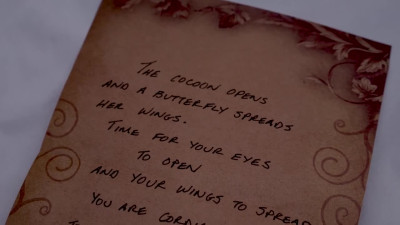 THE COCOON OPENS
AND A BUTTERFLY SPREADS
HER WINGS.
TIME FOR YOUR EYES
TO OPEN
AND YOUR WINGS TO SPREAD
YOU ARE